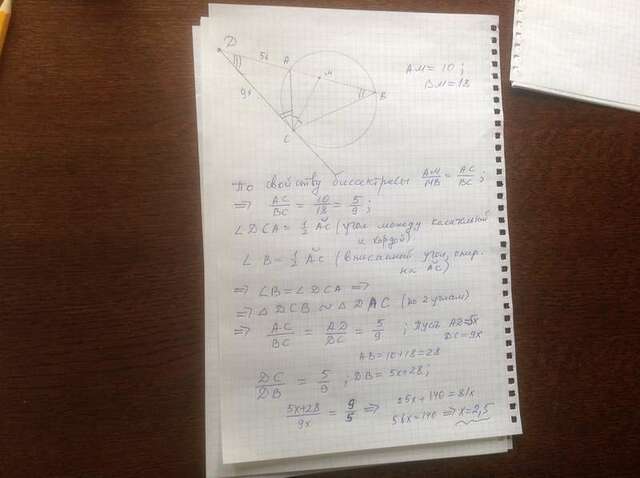 D
5x
A
M
B
9x
C
AM = 10 ;
BM = 18
По свойству биссектрисы AM/MB = AC/BC ;
⇒ AC/BC = 10/18 = 5/9 ;
∠DCA = 1/2 ÂC (угол между касательной
и хордой)
∠B = 1/2 ÂC (вписанный угол, опир.
на ÂC)
⇒ ∠B = ∠DCA ⇒
⇒ △DCB ∾ △DAC (по 2 углам)
⇒ AC/BC = AD/DC = 5/9 ; Пусть AD=5x
DC=9x
AB = 10+18 = 28
DC/DB = 5/9 ; DB = 5x+28 ;
(5x+28)/9x = 9/5 ⇒ 25x + 140 = 81x
56x = 140 ⇒ x = 2,5